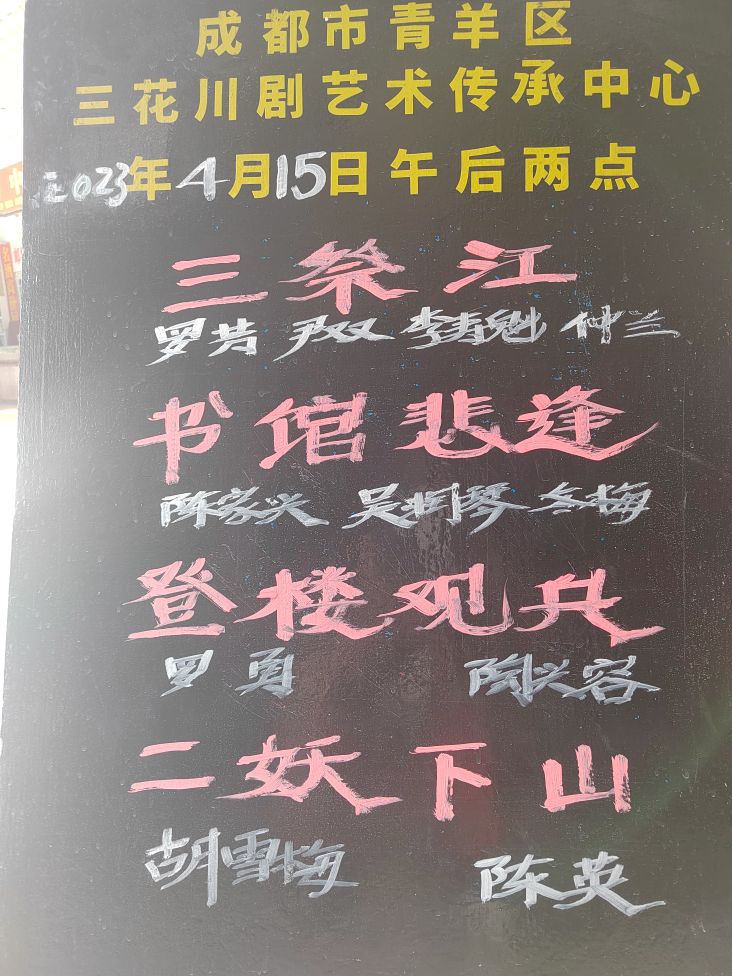 成都市青羊区
三花川剧艺术传承中心
2023年4月15日午后两点
三祭江
罗芳 尹双 李春魁 仲兰
书馆悲逢
陈家兴 吴润琴 冬梅
登楼观兵
罗勇 陶兴容
二妖下山
胡雪梅 陈英